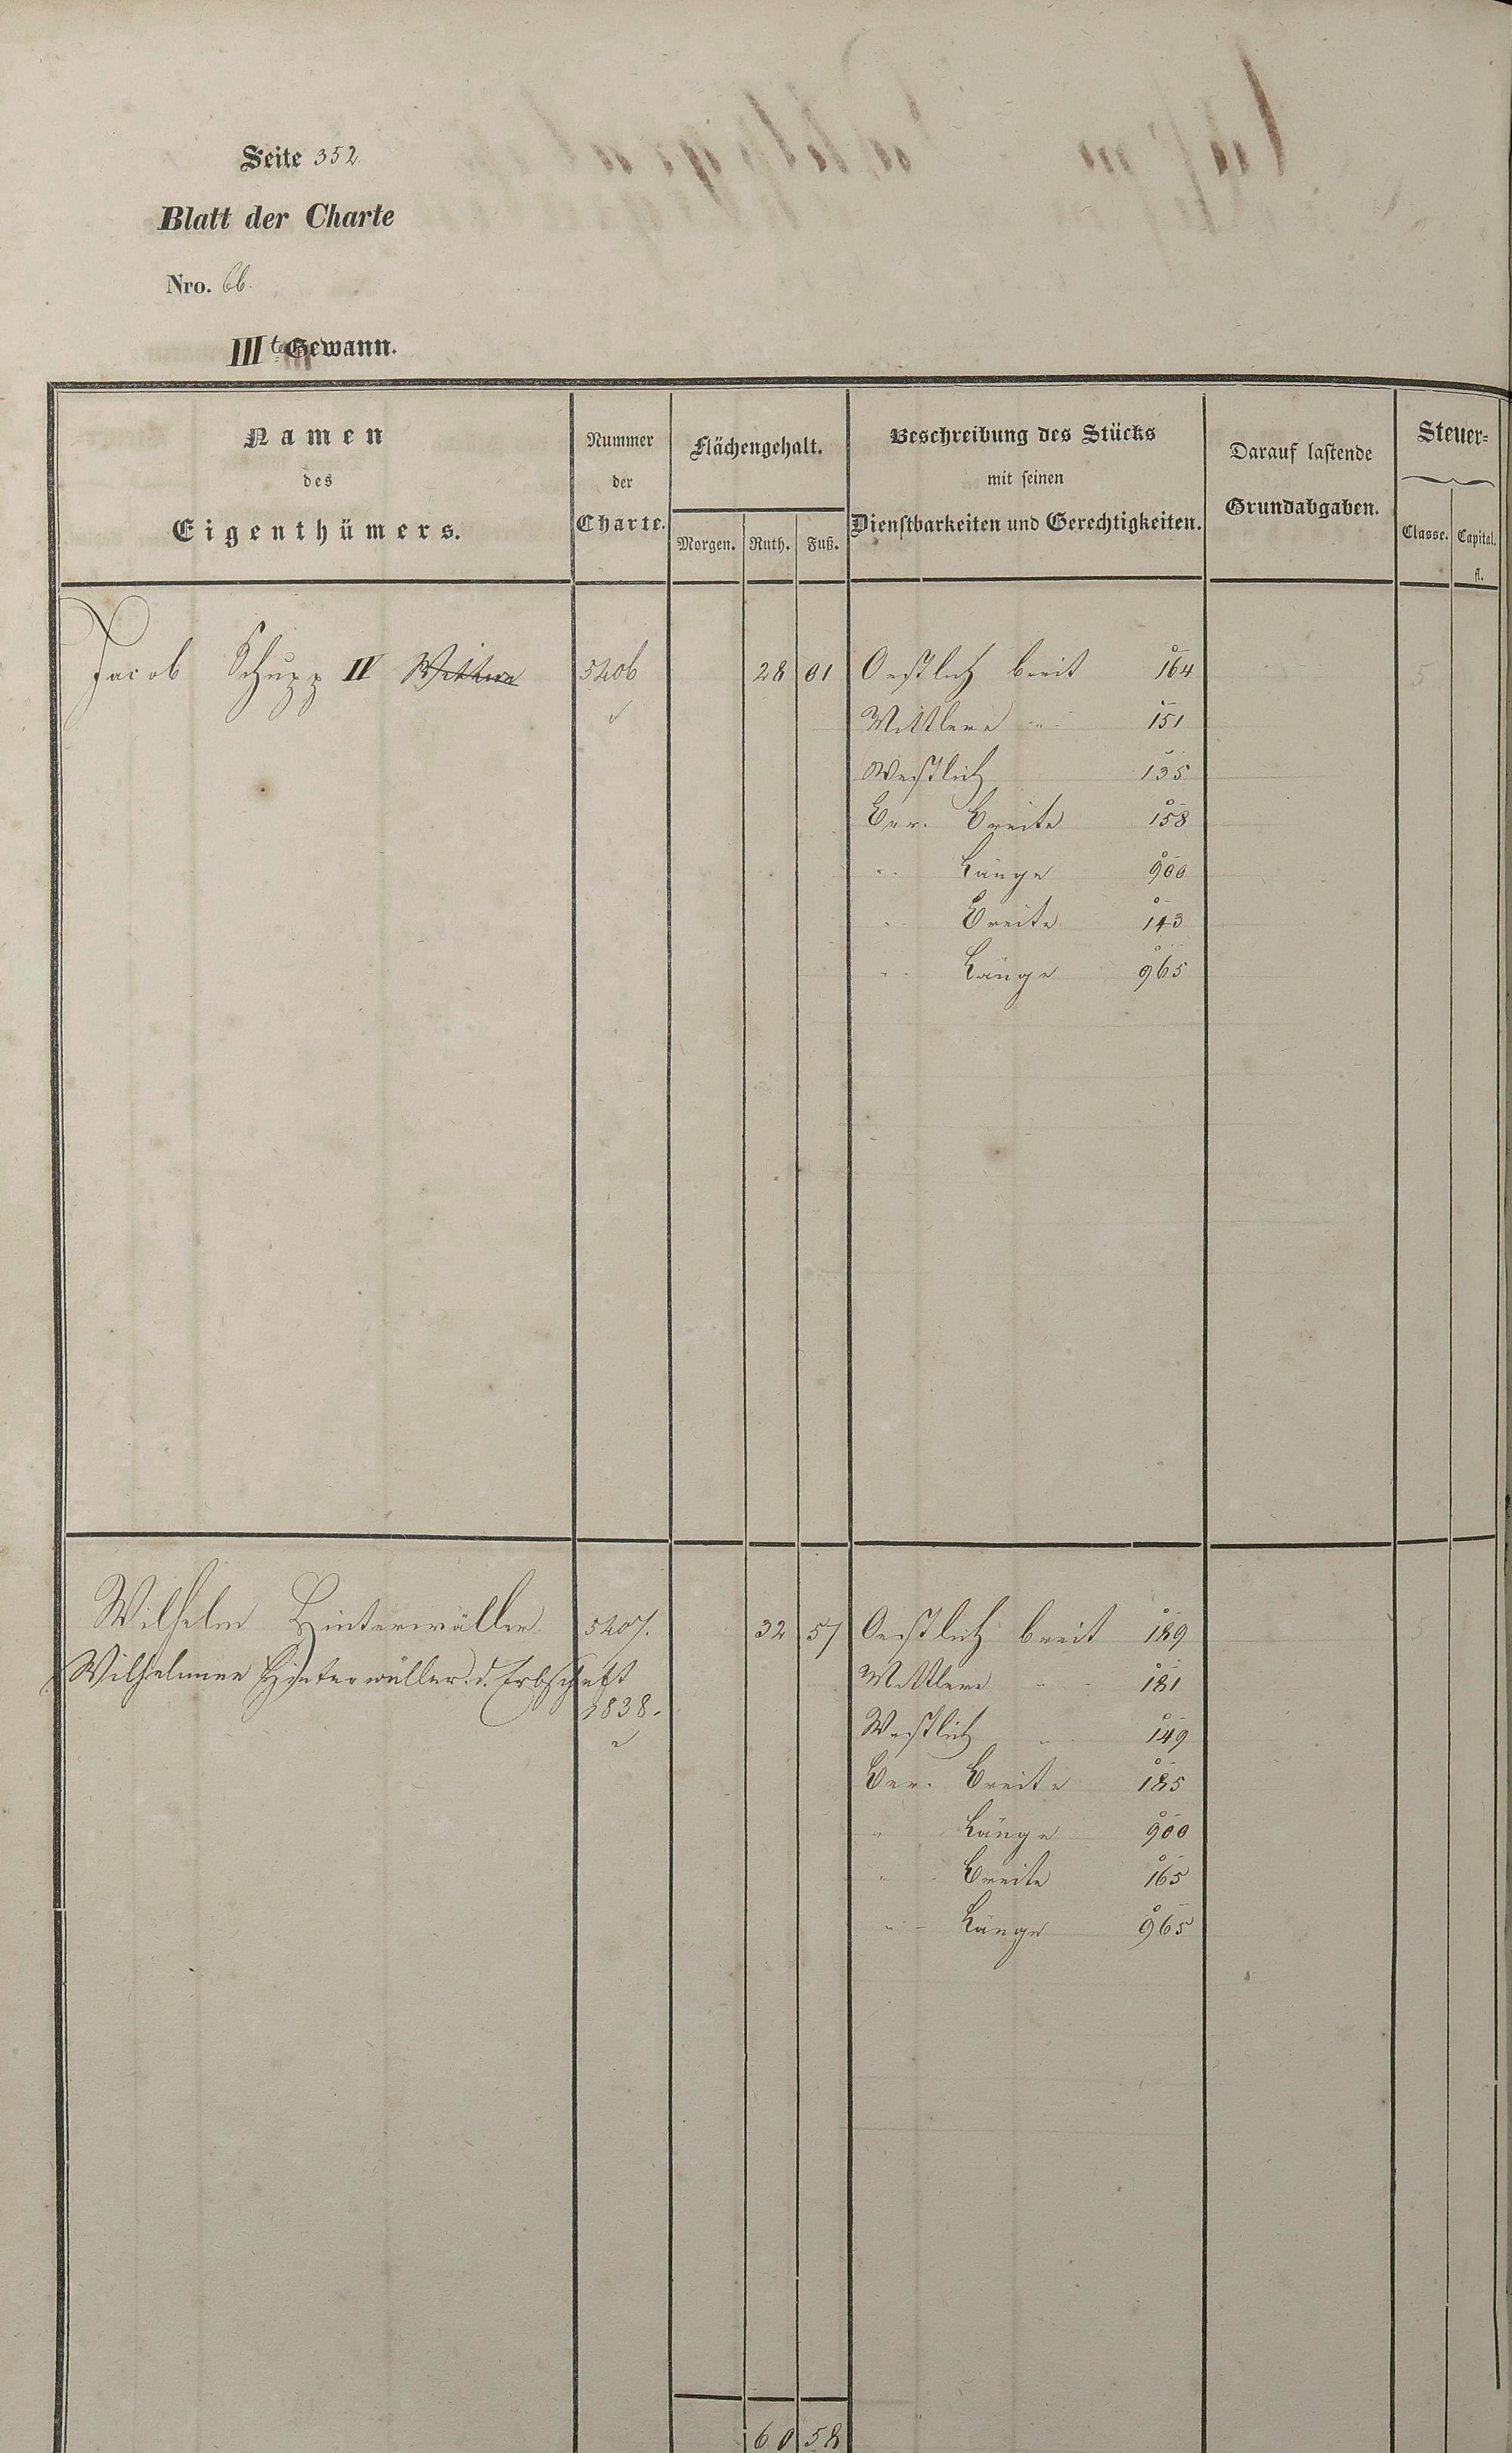 Seite 352
Blatt der Charte
Nro. 66.
III te Gewann.
Namen
des
Eigenthümers.
Nummer
der
Charte.
Flächengehalt.
Morgen. Ruth. Fuß.
Beschreibung des Stücks
mit seinen
Dienstbarkeiten und Gerechtigkeiten.
Darauf lastende
Grundabgaben.
Steuer=
Classe. Capital.
fl.
Jacob Schupp IV Wittwe 5206 28 01 Oestlich breit 164 5
Mittlere " 151
Westlich 135
Ver. Breite 158
" Länge 900
" Breite 143
" Länge 965
Wilhelm Hinterwäller 5207. 32 57 Oestlich breit 189 5
Wilhelmine Hinterwäller d. Erbschaft Mittlere " 181
1838. Westlich " 149
Ver. Breite 185
" Länge 900
" Breite 165
" Länge 965
60 58